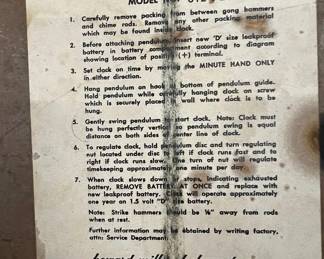 MODEL NO. 612
1. Carefully remove packing from between gong hammers
and chime rods. Remove any other packing material
which may be found inside clock.
2. Before attaching pendulum, insert new 'D' size leakproof
battery in battery compartment according to diagram
showing location of positive (+) terminal.
3. Set clock on time by moving the MINUTE HAND ONLY
in either direction.
4. Hang pendulum on hook at bottom of pendulum guide.
Hold pendulum while carefully hanging clock on screw
which is securely placed in wall where clock is to be
hung.
5. Gently swing pendulum to start clock. Note: Clock must
be hung perfectly vertical so pendulum swing is equal
distance on both sides of center line of clock.
6. To regulate clock, hold pendulum disc and turn regulating
nut located under disc to left if clock runs fast and to
right if clock runs slow. One turn of nut will regulate
timekeeping approximately one minute per day.
7. When clock slows down or stops, indicating exhausted
battery, REMOVE BATTERY AT ONCE and replace with
new leakproof battery. Clock will operate approximately
one year on 1.5 volt "D" size battery.
Note: Strike hammers should be ⅛" away from rods
when at rest.
Further information may be obtained by writing factory,
attn: Service Department.
howard miller clock